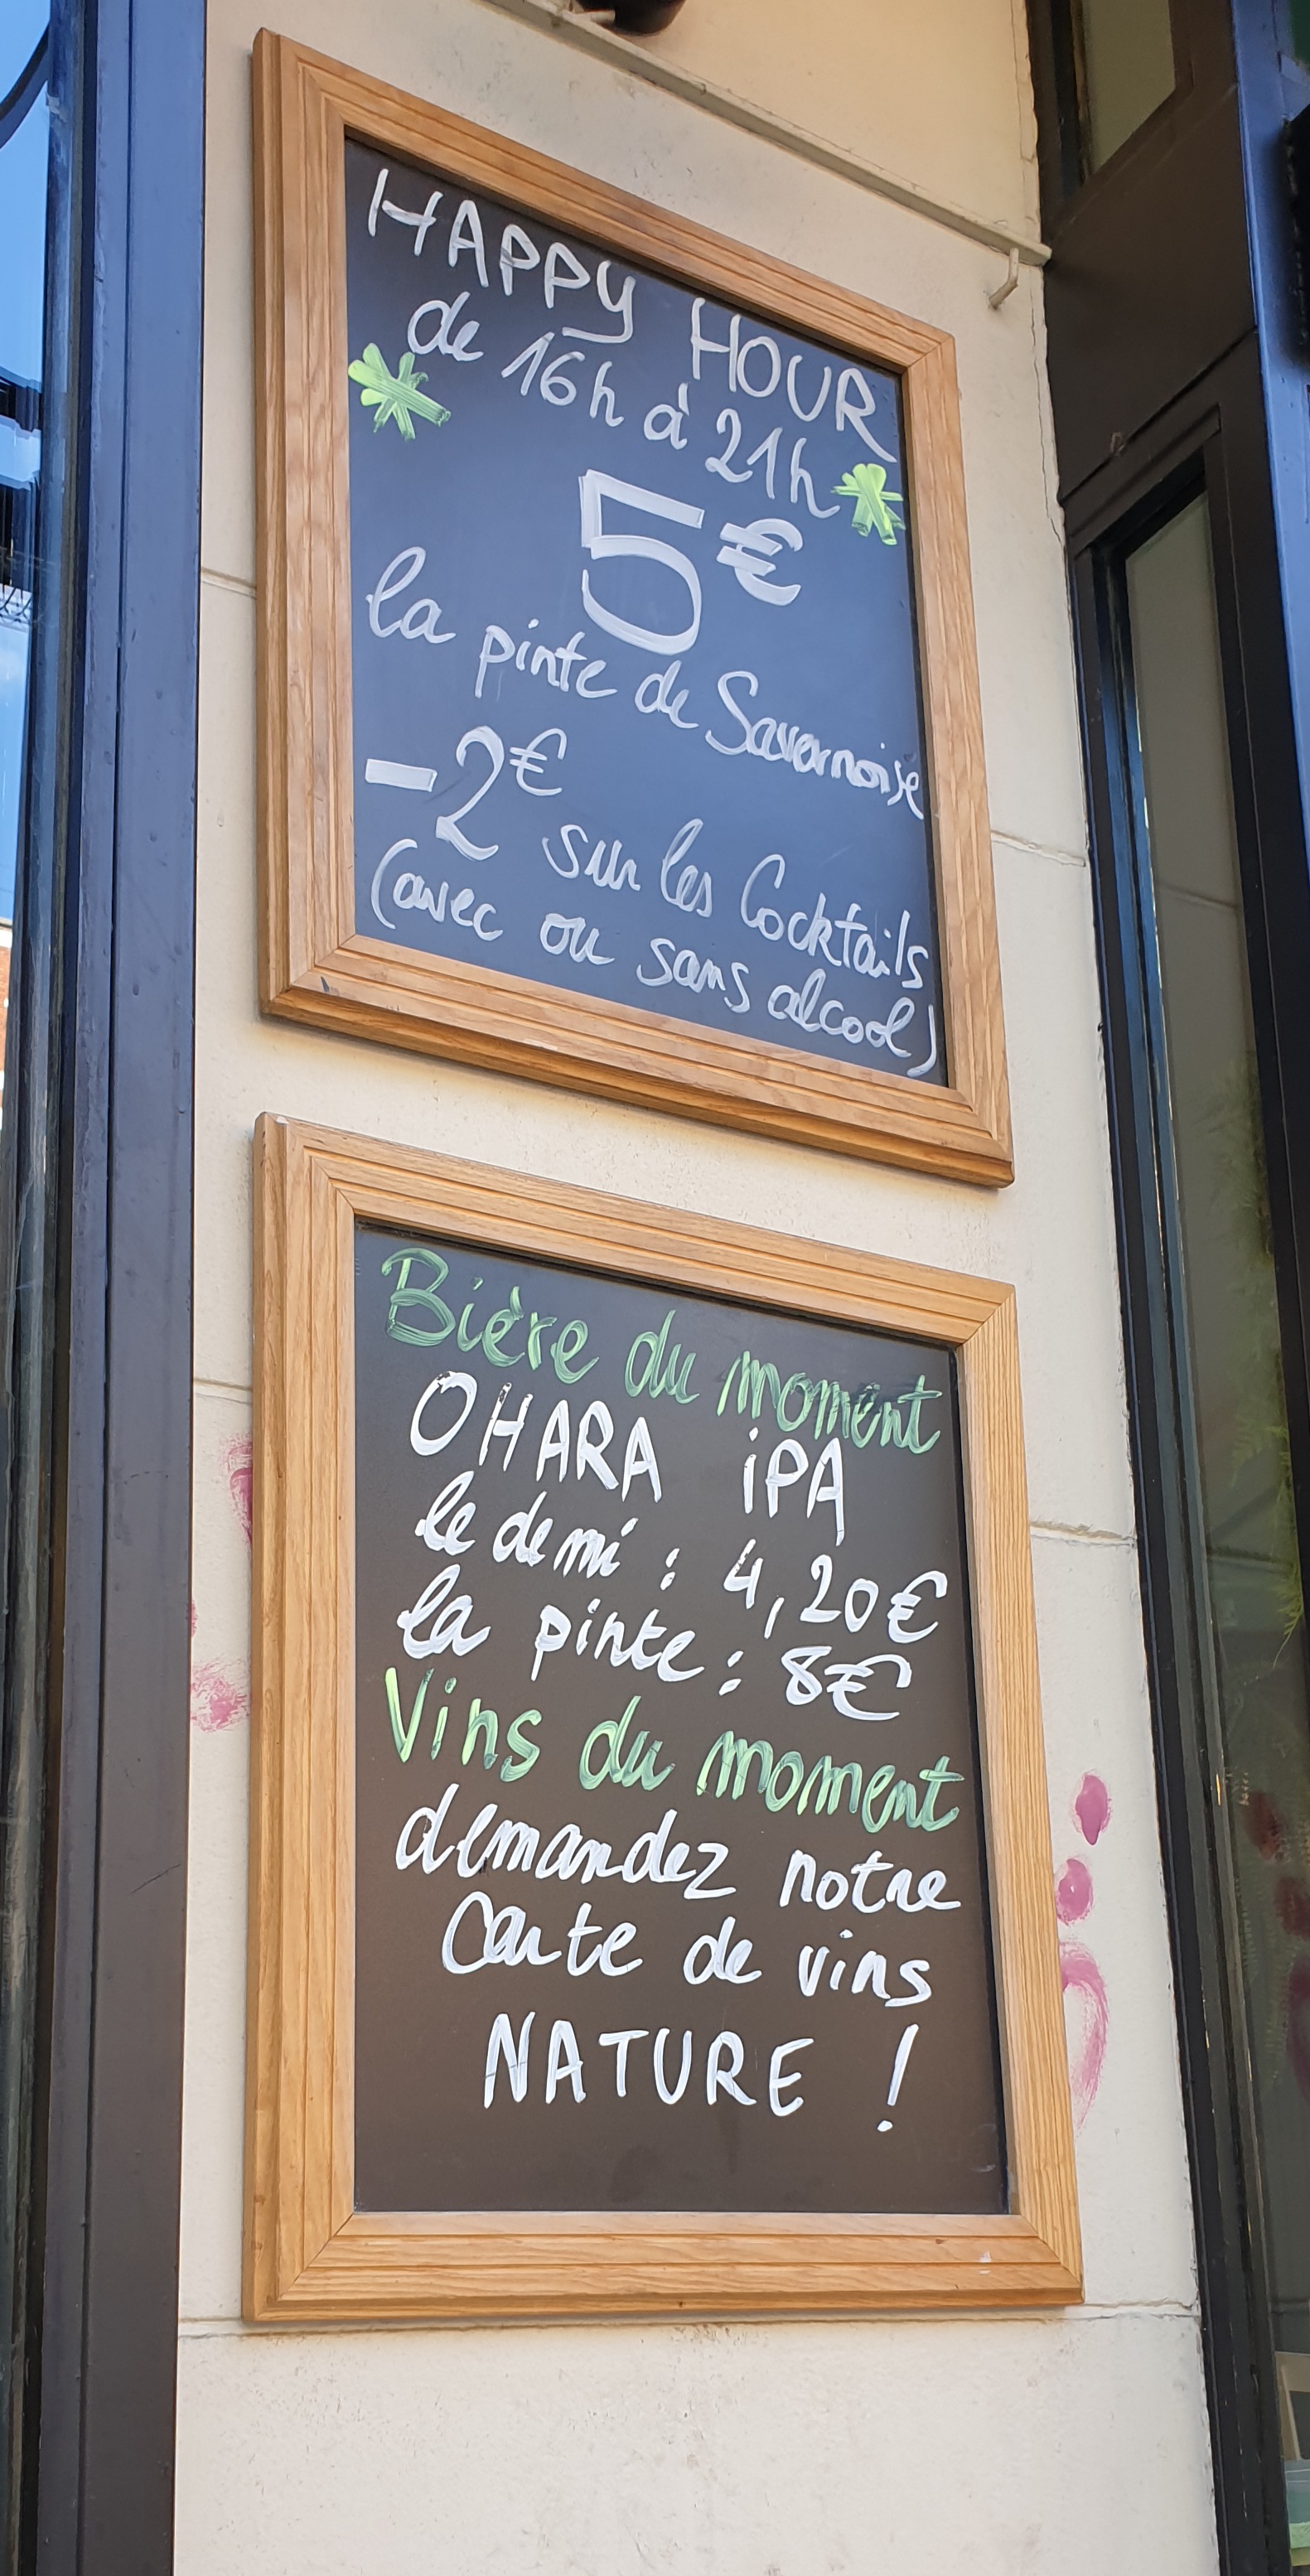 HAPPY HOUR
de 16h à 21h
5€
la pinte de Savernoise
-2€ sur les Cocktails
(avec ou sans alcool)
Bière du moment
OHARA iPA
le demi : 4,20€
la pinte : 8€
Vins du moment
demandez notre
Carte de vins
NATURE !